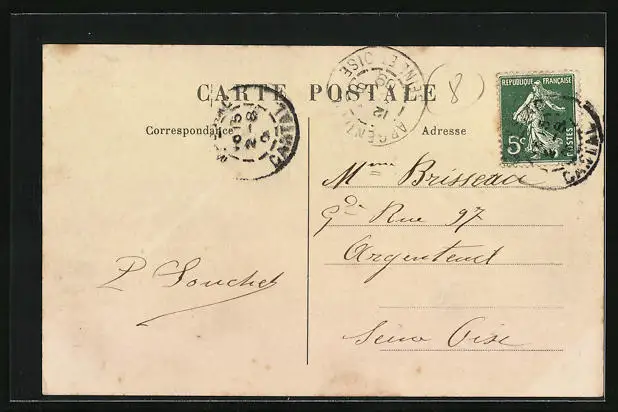 CARTE POSTALE
(8)
Correspondance
Adresse
REPUBLIQUE FRANÇAISE
5c
POSTES
ARGENTEUIL SEINE ET OISE
2-8
CANTAL
CANTAL
Mme Brisseau
Gde Rue 97
Argenteuil
Seine Oise
P. Souchet